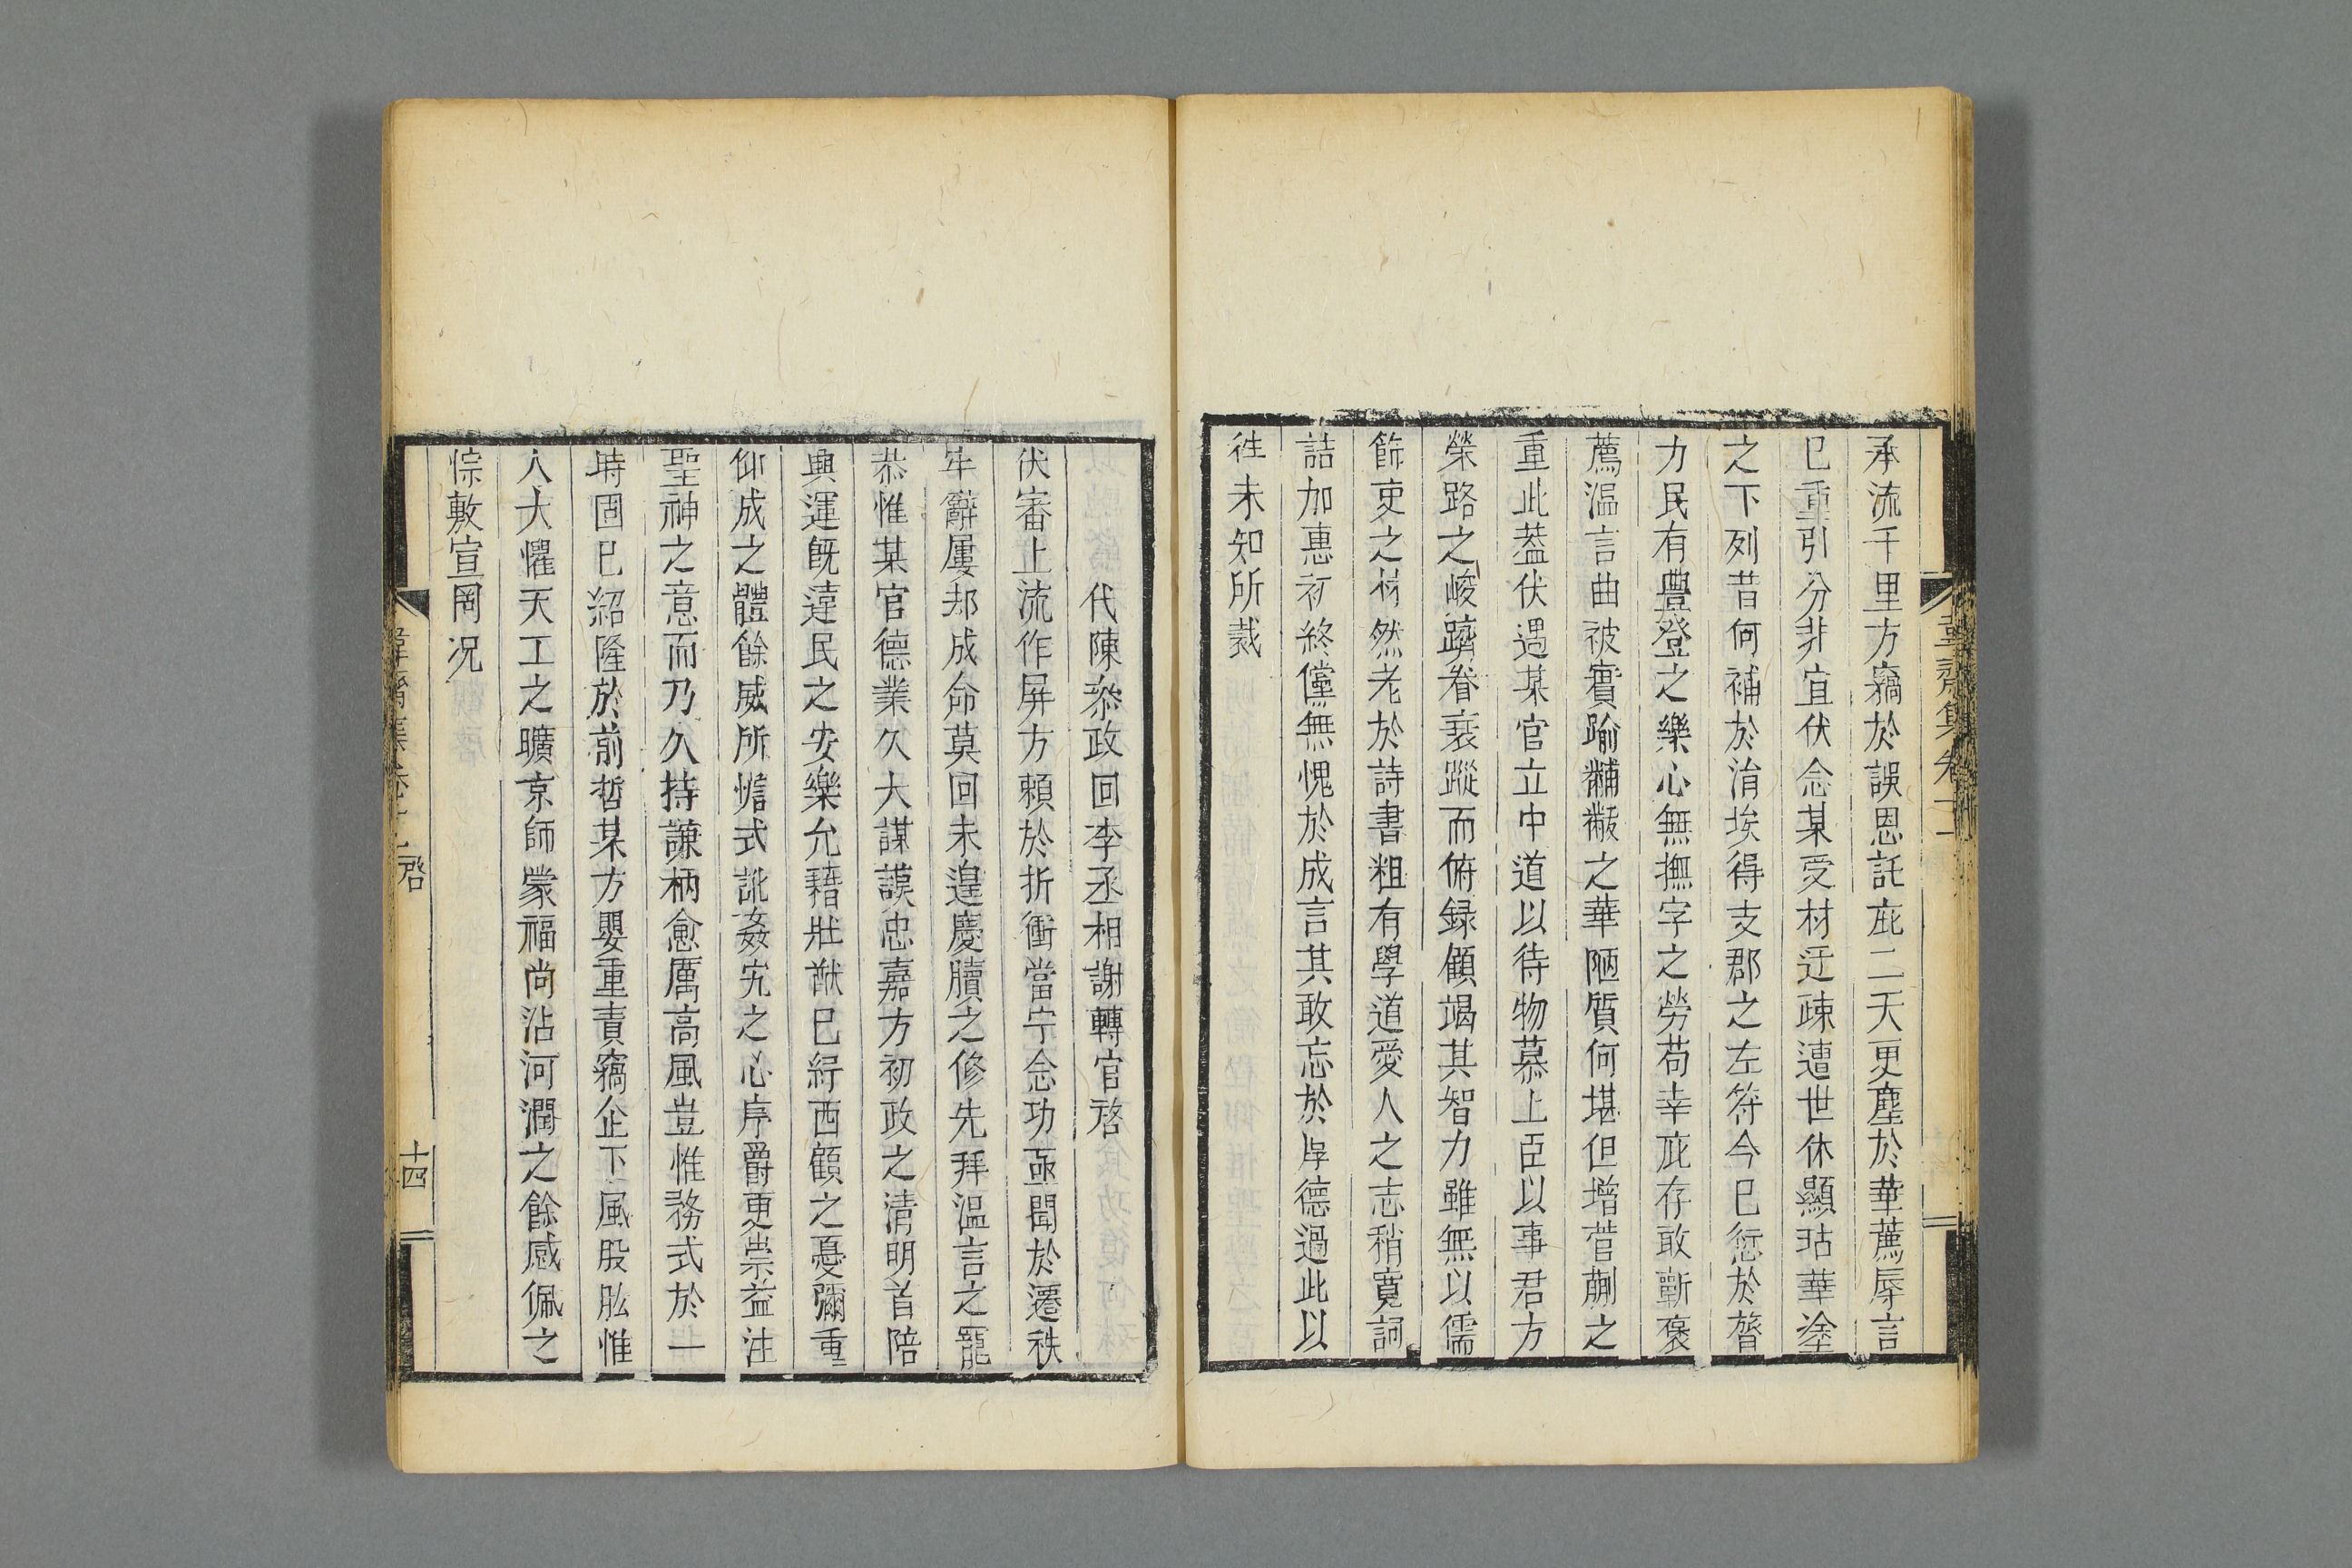 承流千里方竊於誤恩託庇二天更塵於華薦辱言
已重引分非宜伏念某受材迂疎遭世休顯玷華塗
之下列昔何補於涓埃得支郡之左符今已愆於瞀
力民有豐登之樂心無撫字之勞苟幸庇存敢蘄褒
薦溫言曲被實踰黼黻之華陋質何堪但增菅蒯之
重此蓋伏遇某官立中道以待物慕上臣以事君方
榮路之峻躋眷衰蹤而俯録顧竭其智力雖無以儒
餙吏之材然老於詩書粗有學道愛人之志稍寛詞
詰加惠初終儻無愧於成言其敢忘於厚德過此以
徃未知所裁
韋齋集卷十一
代陳叅政回李丞相謝轉官啓
伏審上流作屏方賴於折衝當宁念功亟聞於遷秩
牢辭屢却成命莫回未遑慶牘之修先拜溫言之寵
恭惟某官德業久大謀謨忠嘉方初政之清明首陪
興運旣違民之安樂允藉壯猷已紓西顧之憂彌重
仰成之體餘威所憺式訛姦宄之心序爵更崇益注
聖神之意而乃久持謙柄愈厲高風豈惟務式於一
時固已紹隆於前哲某方嬰重責竊企下風股肱惟
人大懼天工之曠京師蒙福尚沾河潤之餘感佩之
悰敷宣罔况
韋齋集卷十一 啓
十四